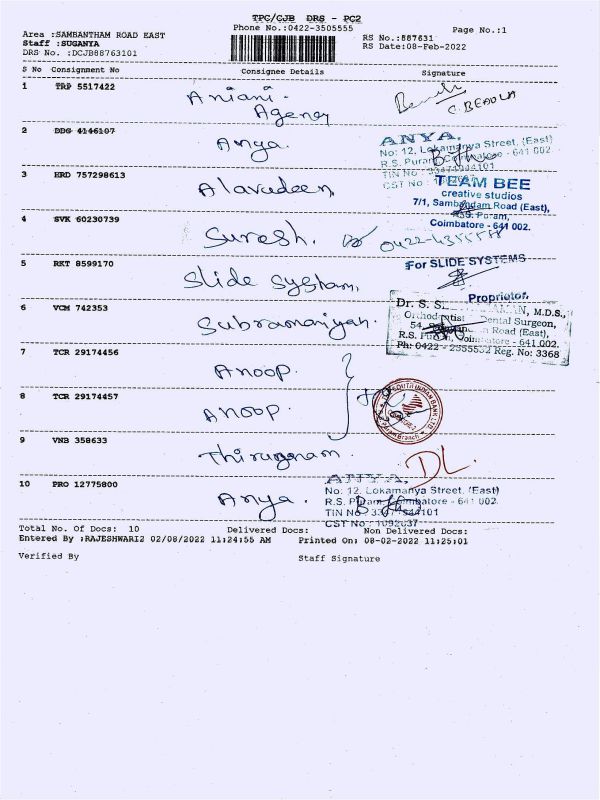 TPC/CJB DRS - PC2
Phone No.:0422-3505555
Page No.:1
Area :SAMBANTHAM ROAD EAST
RS No.:887631
Staff :SUGANYA
RS Date:08-Feb-2022
DRS No. :DCJB88763101
S No Consignment No Consignee Details Signature
1 TRP 5517422 Aniani. Agency
C. BEAULA
2 DDG 4146107 Anya.
ANYA,
No: 12, Lokamanya Street, (East)
R.S. Puram, Coimbatore - 641 002
TIN No
CST No
3 HRD 757298613 Alavudeen,
TEAM BEE
creative studios
7/1, Sambandam Road (East),
R.S. Puram,
Coimbatore - 641 002.
4 SVK 60230739 Suresh.
5 RKT 8599170 Slide System,
For SLIDE SYSTEMS
Proprietor.
6 VCM 742353 Subramaniyan.
Dr. S. S. M.D.S.,
Orthodontist Dental Surgeon,
54, Road (East),
R.S. Puram, Coimbatore - 641 002.
Ph: 0422 - Reg. No: 3368
7 TCR 29174456 Anoop.
8 TCR 29174457 Anoop.
SOUTH INDIAN BANK LTD
Branch
9 VNB 358633
DL.
10 PRO 12775800 Anya.
ANYA,
No: 12, Lokamanya Street, (East)
R.S. Puram, Coimbatore - 641 002.
TIN No
CST No : 1092637
Total No. Of Docs: 10 Delivered Docs: Non Delivered Docs:
Entered By :RAJESHWARI2 02/08/2022 11:24:55 AM Printed On: 08-02-2022 11:25:01
Verified By Staff Signature